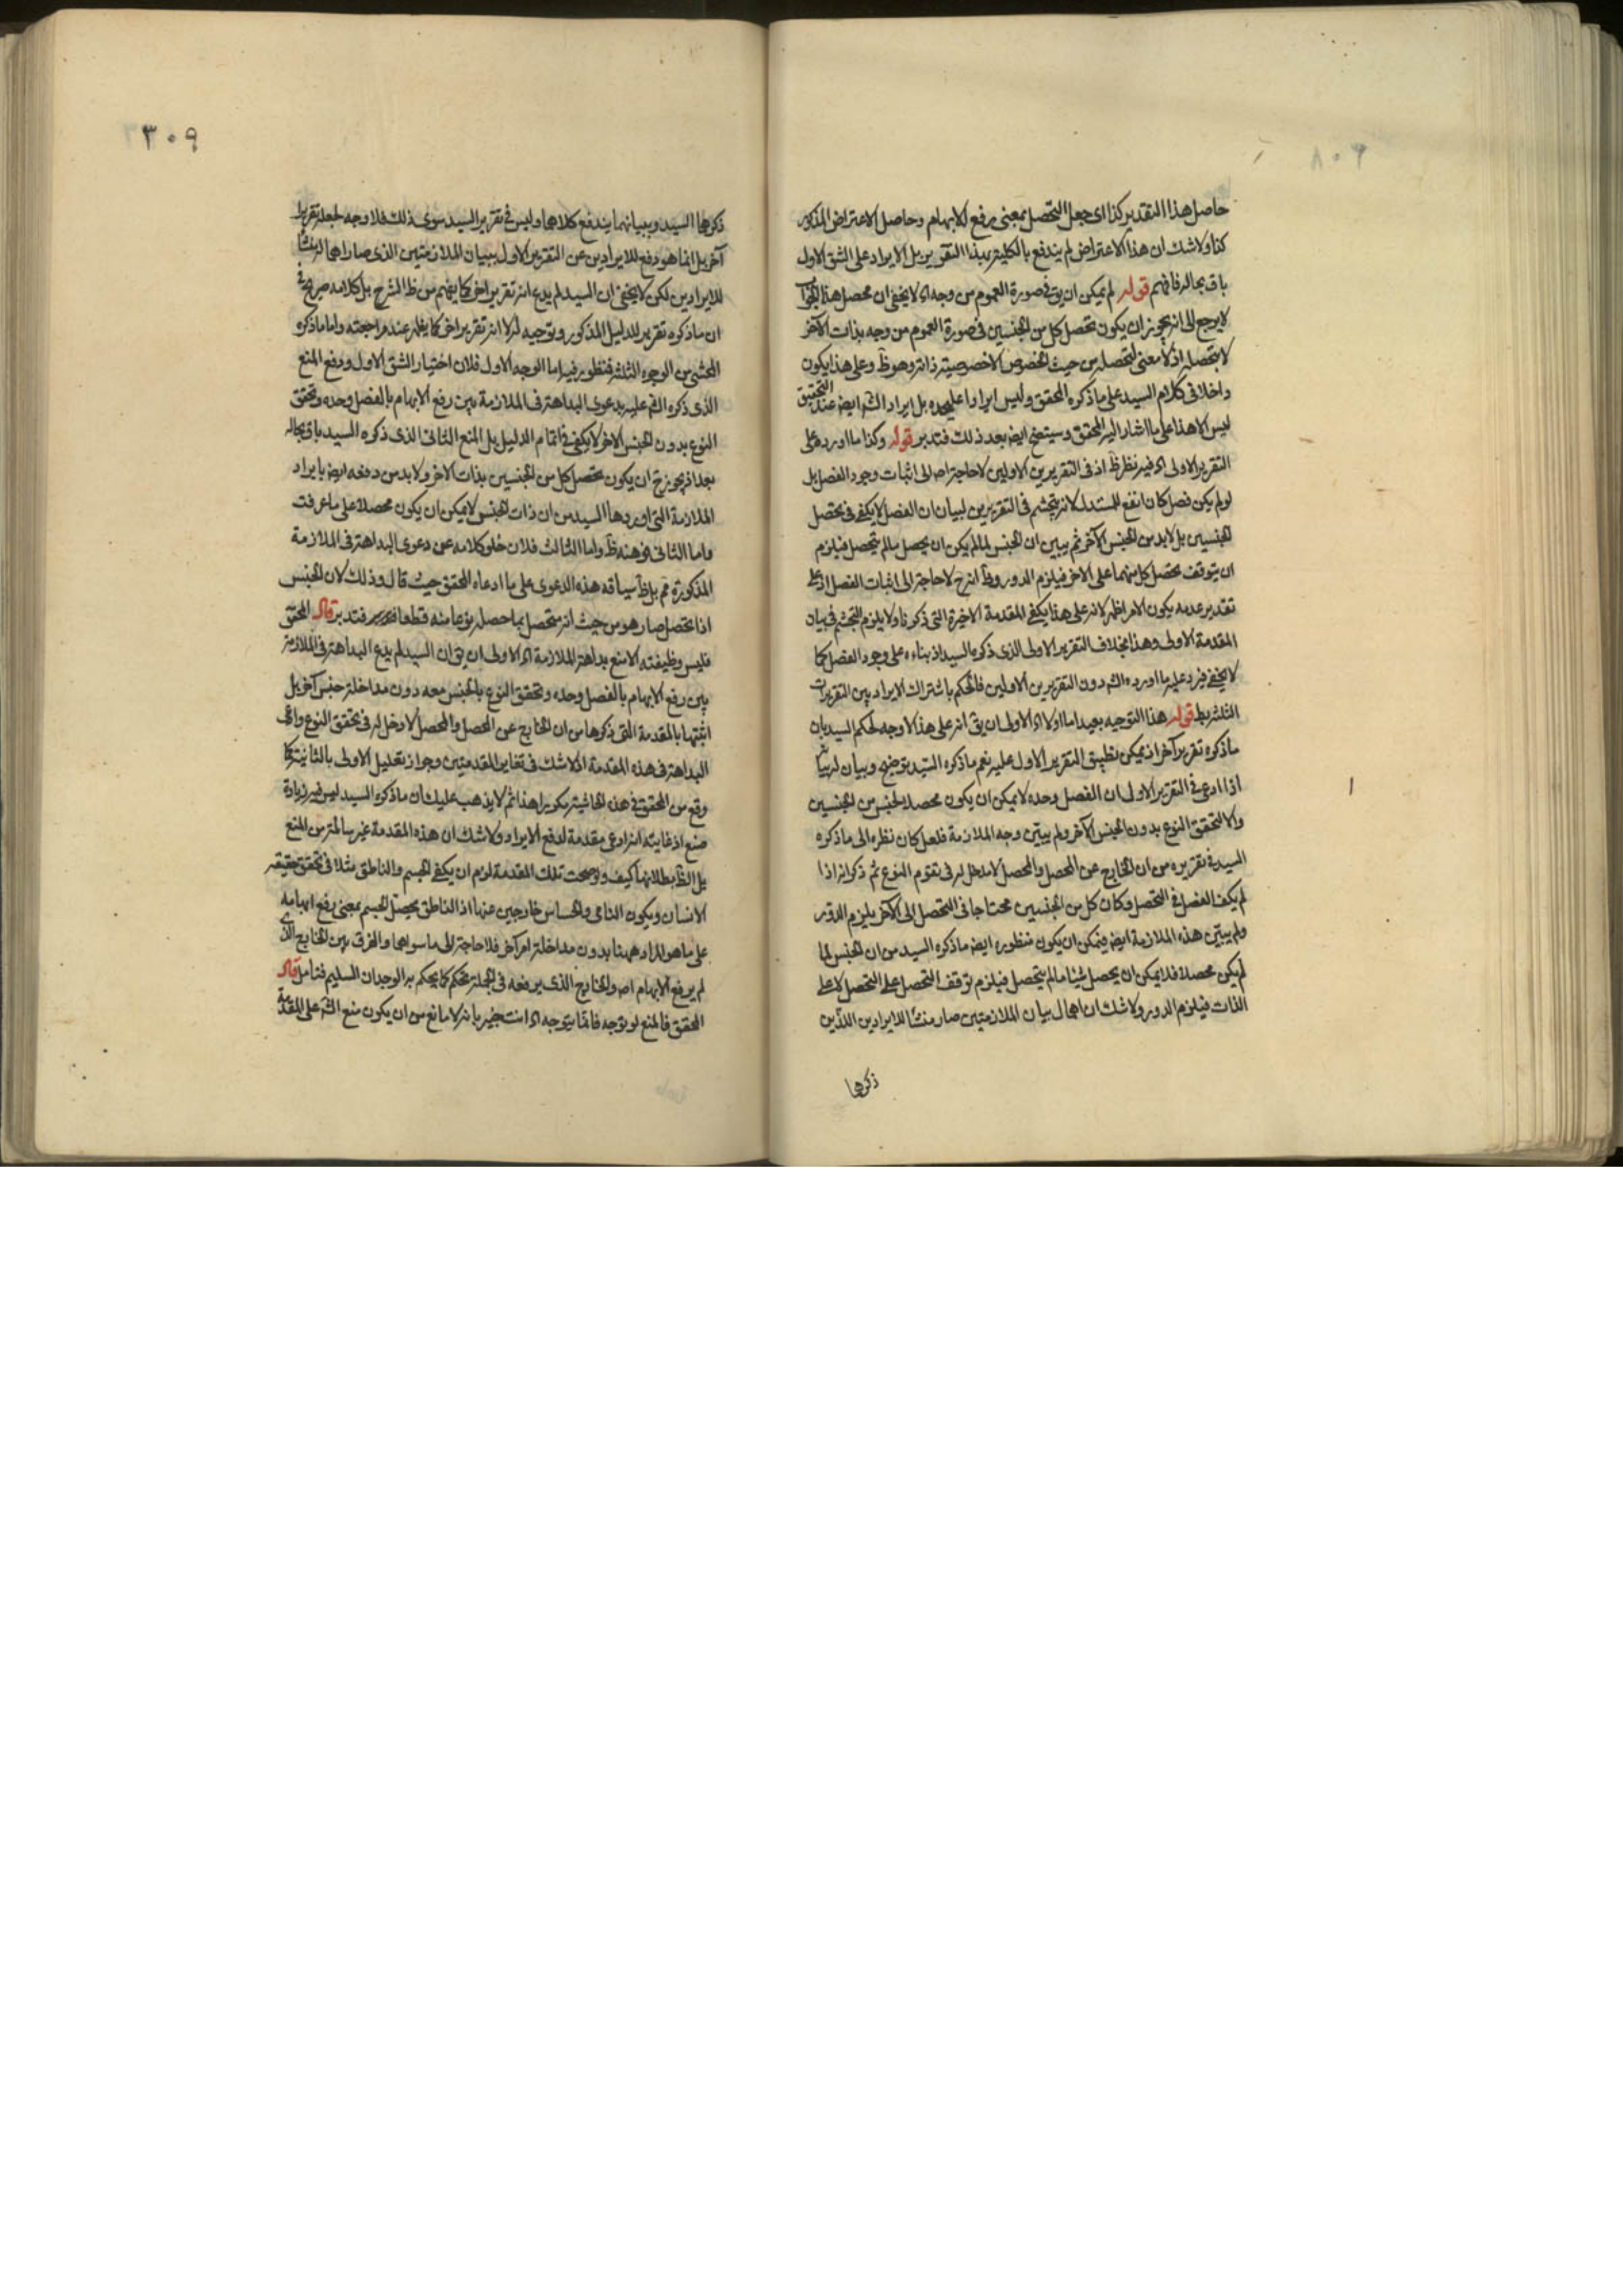 حاصل هذا التقدير كذا اى جعل التحصل بمعنى رفع الابهام وحاصل الاعتراض المذكور
كذا ولاشك ان هذا الاعتراض لم يندفع بالكلية بهذا التقرير بل الايراد على الشق الاول
باق بحاله فافهم قوله لم يمكن ان يق فى صورة العموم من وجه اه لا يخفى ان محصل هذا الجواب
لا يرجع الى انه يجوز ان يكون تحصل كل من الجنسين فى صورة العموم من وجه بذات الآخر
لا بتحصله اذ لا معنى لتحصله من حيث الخصوص الا خصوصية ذاته وهو ظ وعلى هذا يكون
داخلا فى كلام السيد على ما ذكره المحقق وليس ايرادا عليحده بل ايراد الش ايضه عند التحقيق
ليس الا هذا على ما اشار اليه المحقق وسيتضح ايضه بعد ذلك فتدبر قوله وكذا ما اورده على
التقرير الاولى اه فيه نظر ظ اذ فى التقريرين الاولين لا حاجة اصه الى اثبات وجود الفصل بل
لو لم يكن فصل كان انفع للمستدل لانه يتجشم فى التقريرين لبيان ان الفصل لا يكفى فى تحصل
الجنسين بل لابد من الجنس الآخر ثم يبين ان الجنس لما لم يكن ان يحصل ما لم يتحصل فيلزم
ان يتوقف تحصل كل منهما على الاخر فيلزم الدور وظ انه ح لا حاجة الى اثبات الفصل اذ على
تقدير عدمه يكون الامر اظهر لانه على هذا يكفى المقدمة الاخيرة التى ذكرنا ولا يلزم التجشم فى بيان
المقدمة الاولى وهذا بخلاف التقرير الاولى الذى ذكره السيد اذ بناءه على وجود الفصل كما
لا يخفى فيرد عليه ما اورده الش دون التقريرين الاولين فالحكم باشتراك الايراد بين التقريرات
الثلثة بط قوله هذا التوجيه بعيد اما اولا اه الاولى ان يق انه على هذا لا وجه لحكم السيد بان
ما ذكره تقرير آخر اذ يمكن تطبيق التقرير الاول عليه نعم ما ذكره السيد توضيح وبيان له بيانه
اذ ادعى فى التقرير الاول ان الفصل وحده لا يمكن ان يكون محصلا لجنس من الجنسين
والا لتحقق النوع بدون الجنس الآخر ولم يبين وجه الملازمة فلعل كان نظره الى ما ذكره
السيد فى تقريره من ان الخارج عن المحصل والمحصل لا مدخل له فى تقوم النوع ثم ذكر انه اذا
لم يكف الفصل فى التحصل وكان كل من الجنسين محتاجا فى التحصل الى الآخر يلزم الدور
ولم يبين هذه الملازمة ايضه فيمكن ان يكون منظوره ايضه ما ذكره السيد من ان الجنس لما
لم يكن محصلا فلا يمكن ان يحصل شيئا ما لم يتحصل فيلزم توقف التحصل على التحصل لا على
الذات فيلزم الدور ولاشك ان اهمال بيان الملازمتين صار منشأ للايرادين اللذين
ذكرها
٣٠٩
ذكرها السيد وببيانهما يندفع كلاهما وليس فى تقرير السيد سوى ذلك فلا وجه لجعله تقريرا
آخر بل انما هو دفع للايرادين عن التقرير الاول ببيان الملازمتين الذى صار اهمالهما منشأ
للايرادين لكن لا يخفى ان السيد لم يدع انه تقرير اخر كما يفهم من ظ الشرح بل كلامه صريح فى
ان ما ذكره تقرير للدليل المذكور وتوجيه له لا انه تقرير اخر كما يظهر عند مراجعته واما ما ذكره
المحشى من الوجوه الثلثة فمنظور فيه اما الوجه الاول فلان اختيار الشق الاول ودفع المنع
الذى ذكره الش عليه بدعوى البداهة فى الملازمة بين رفع الابهام بالفصل وحده وتحقق
النوع بدون الجنس الاخر لا يكفى فى اتمام الدليل بل المنع الثانى الذى ذكره السيد باق بحاله
بعد اذ يجوز ح ان يكون تحصل كل من الجنسين بذات الاخر ولابد من دفعه ايضه بايراد
الملازمة التى اوردها السيد من ان ذات الجنس لا يمكن ان يكون محصلا على ما عرفت
واما الثانى فوهنه ظ واما الثالث فلان خلو كلامه عن دعوى البداهة فى الملازمة
المذكورة مم بل ظ سياقه هذه الدعوى على ما ادعاه المحقق حيث قال وذلك لان الجنس
اذا تحصل صار هو من حيث انه متحصل بما حصله نوعا منه قطعا فتدبر قال المحقق
فليس وظيفته الا منع بداهة الملازمة اه الاولى ان يق ان السيد لم يدع البداهة فى الملازمة
بين رفع الابهام بالفصل وحده وتحقق النوع بالجنس معه دون مداخلة جنس آخر بل
اثبتها بالمقدمة التى ذكرها من ان الخارج عن المحصل والمحصل لا دخل له فى تحقق النوع وادعى
البداهة فى هذه المقدمة اذ لاشك فى تغاير المقدمتين وجواز تعليل الاولى بالثانية كما
وقع من المحقق فى هذه الحاشية مكررا هذا ثم لا يذهب عليك ان ما ذكره السيد ليس فيه زيادة
صنع اذ غايته انه ادعى مقدمة لدفع الايراد ولاشك ان هذه المقدمة غير سالمة من المنع
بل الظ بطلانها كيف ولو صحت تلك المقدمة لزم ان يكفى الجسم والناطق مثلا فى تحقق حقيقة
الانسان ويكون النامى والحساس خارجين عنها اذ الناطق يحصل الجسم بمعنى رفع ابهامه
على ما هو المراد ههنا بدون مداخلة امر آخر فلا حاجة الى ما سواهما والفرق بين الخارج الذى
لم يرفع الابهام اصه والخارج الذى يرفعه فى الجملة تحكم كما يحكم به الوجدان السليم فتامل قال
المحقق فالمنع لو توجه فانما يتوجه اه انت خبير بانه لا مانع من ان يكون منع الش على المقدمة